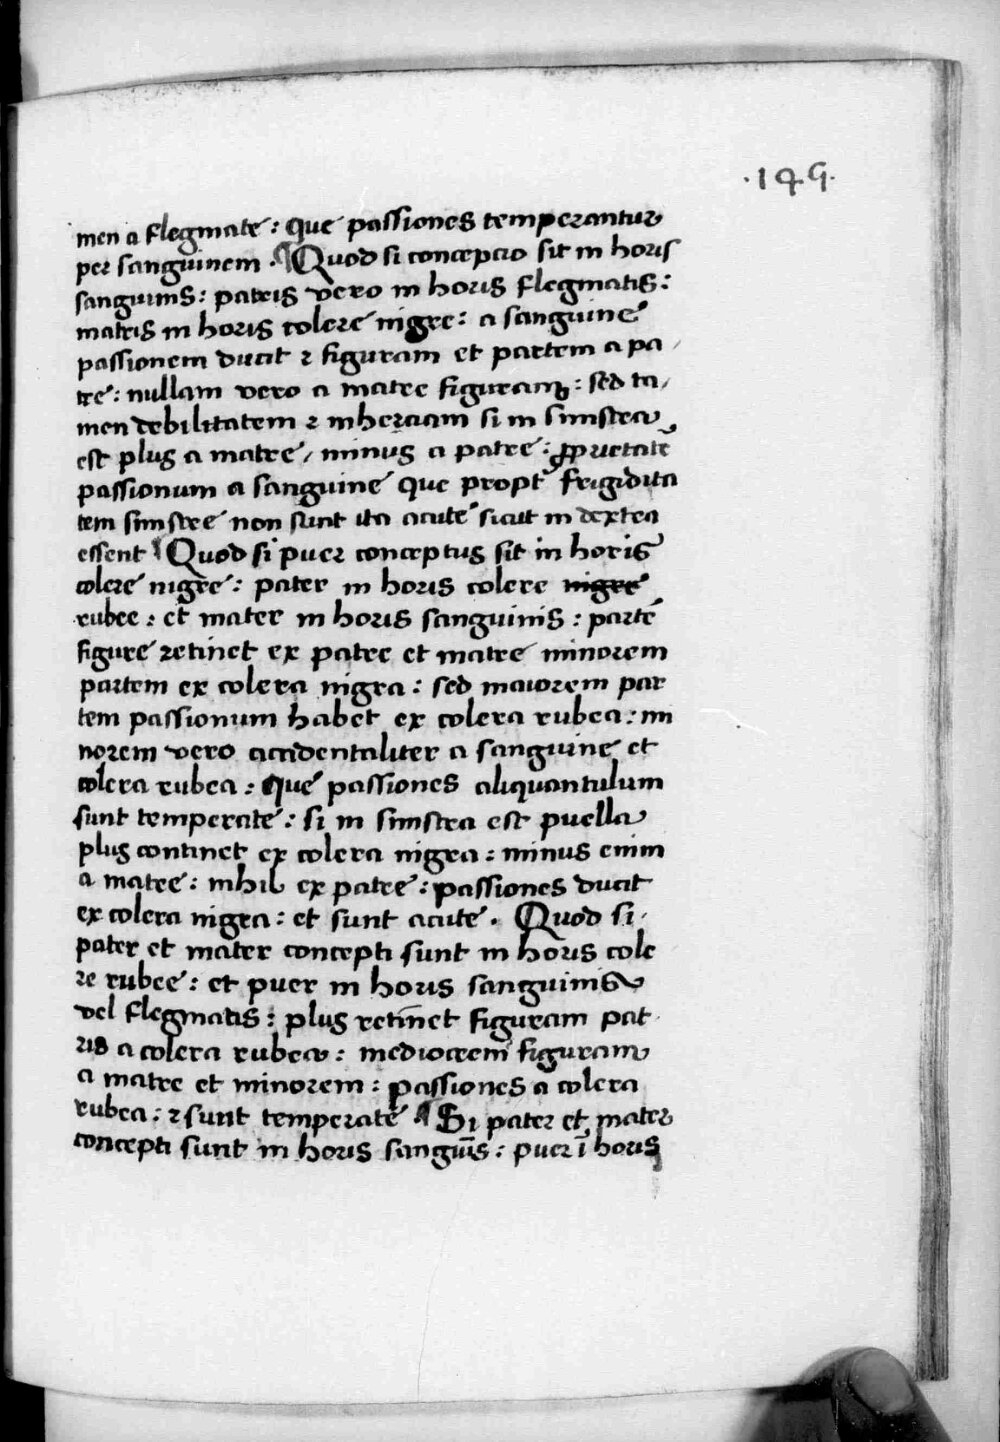 .149.
men a flegmate : que passiones temperantur
per sanguinem . ¶ Quod si concepcio sit in horis
sanguinis : patris vero in horis flegmatis :
matris in horis colere nigre : a sanguine
passionem ducit ⁊ figuram et partem a pa /
tre : nullam vero a matre figuram : sed ta /
men debilitatem ⁊ inherciam si in sinistra
est plus a matre / minus a patre : ꝓprietatē
passionum a sanguine que propt᷑ frigidita
tem sinistre non sunt ita acute sicut in dextra
essent ¶ Quod si puer conceptus sit in horis
colere nigre : pater in horis colere nigre
rubee : et mater in horis sanguinis : partē
figure retinet ex patre et matre minorem
partem ex colera nigra : sed maiorem par
tem passionum habet ex colera rubea : mi
norem vero accidentaliter a sanguine et
colera rubea : que passiones aliquantulum
sunt temperate : si in sinistra est puella
plus continet ex colera nigra : minus enim
a matre : nihil ex patre : passiones ducit
ex colera nigra : et sunt acute . Quod si
pater et mater concepti sunt in horis cole
re rubee : et puer in horis sanguinis
vel flegmatis : plus retīnet figuram pat
ris a colera rubea : mediocrem figuram
a matre et minorem : passiones a colera
rubea : ⁊ sunt temperate ¶ Si pater et mater
concepti sunt in horis sanguīs : puer ī horis